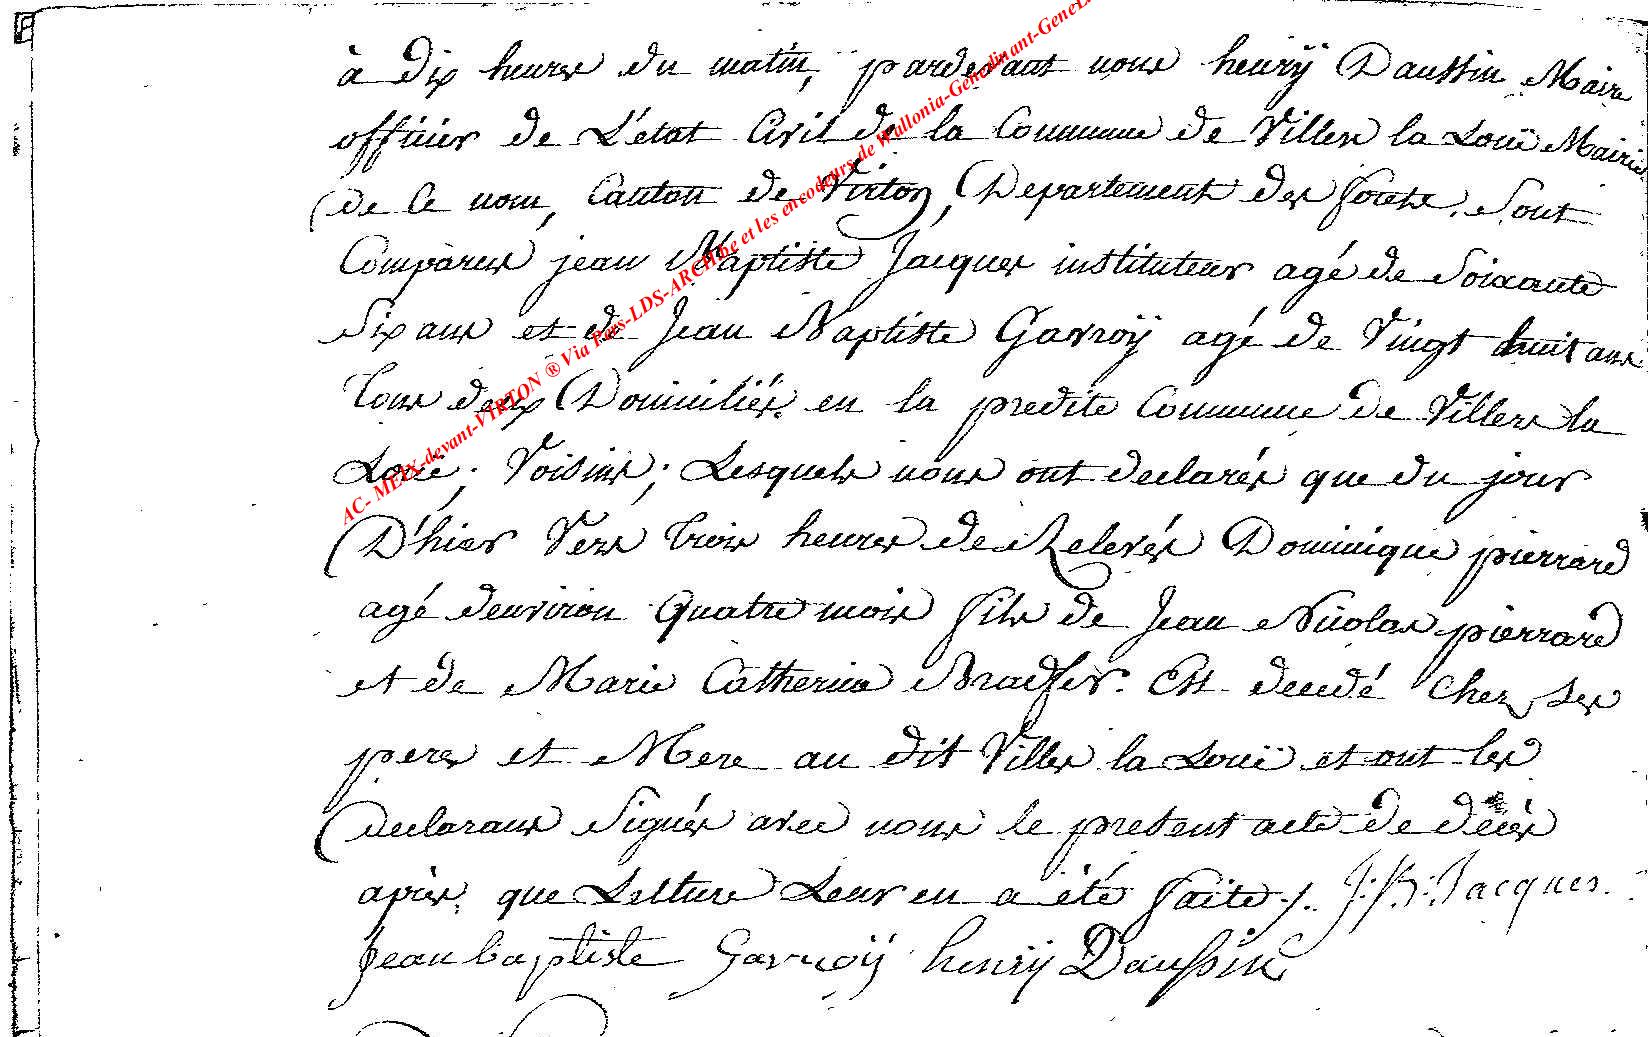 à dix heures du matin, pardevant nous henrÿ Daussin Maire
officier de L'état Civil de la Commune de Villers la Loüe Mairie
de Ce nom, Canton de Virton, Departement des forêts. Sont
Comparus jean Baptiste Jacques instituteur agé de Soixante
Six ans et de Jean Baptiste Gavroÿ agé de Vingt huit ans
Tous deux Domiciliés en la predite Commune de Villers la
Loüe; Voisins; Lesquels nous ont declarés que du jour
D'hier Vers trois heures de Relevés Dominique pierrard
agé denviron Quatre mois fils de Jean Nicolas pierrard
et de Marie Catherine Bradfer. Est decedé Chez Ses
peres et Mere au dit Viller la Loüe et ont les
declarans Signés avec nous le present acte de décès
après que Lecture Leur en a été faite ./. J: B: Jacques.
Jean baptiste Gavroÿ henrÿ Daussin
AC- MEIX-devant-VIRTON ® Via Pers-LDS-ARCH.be et les encodeurs de Wallonia-Genedinant-GeneL